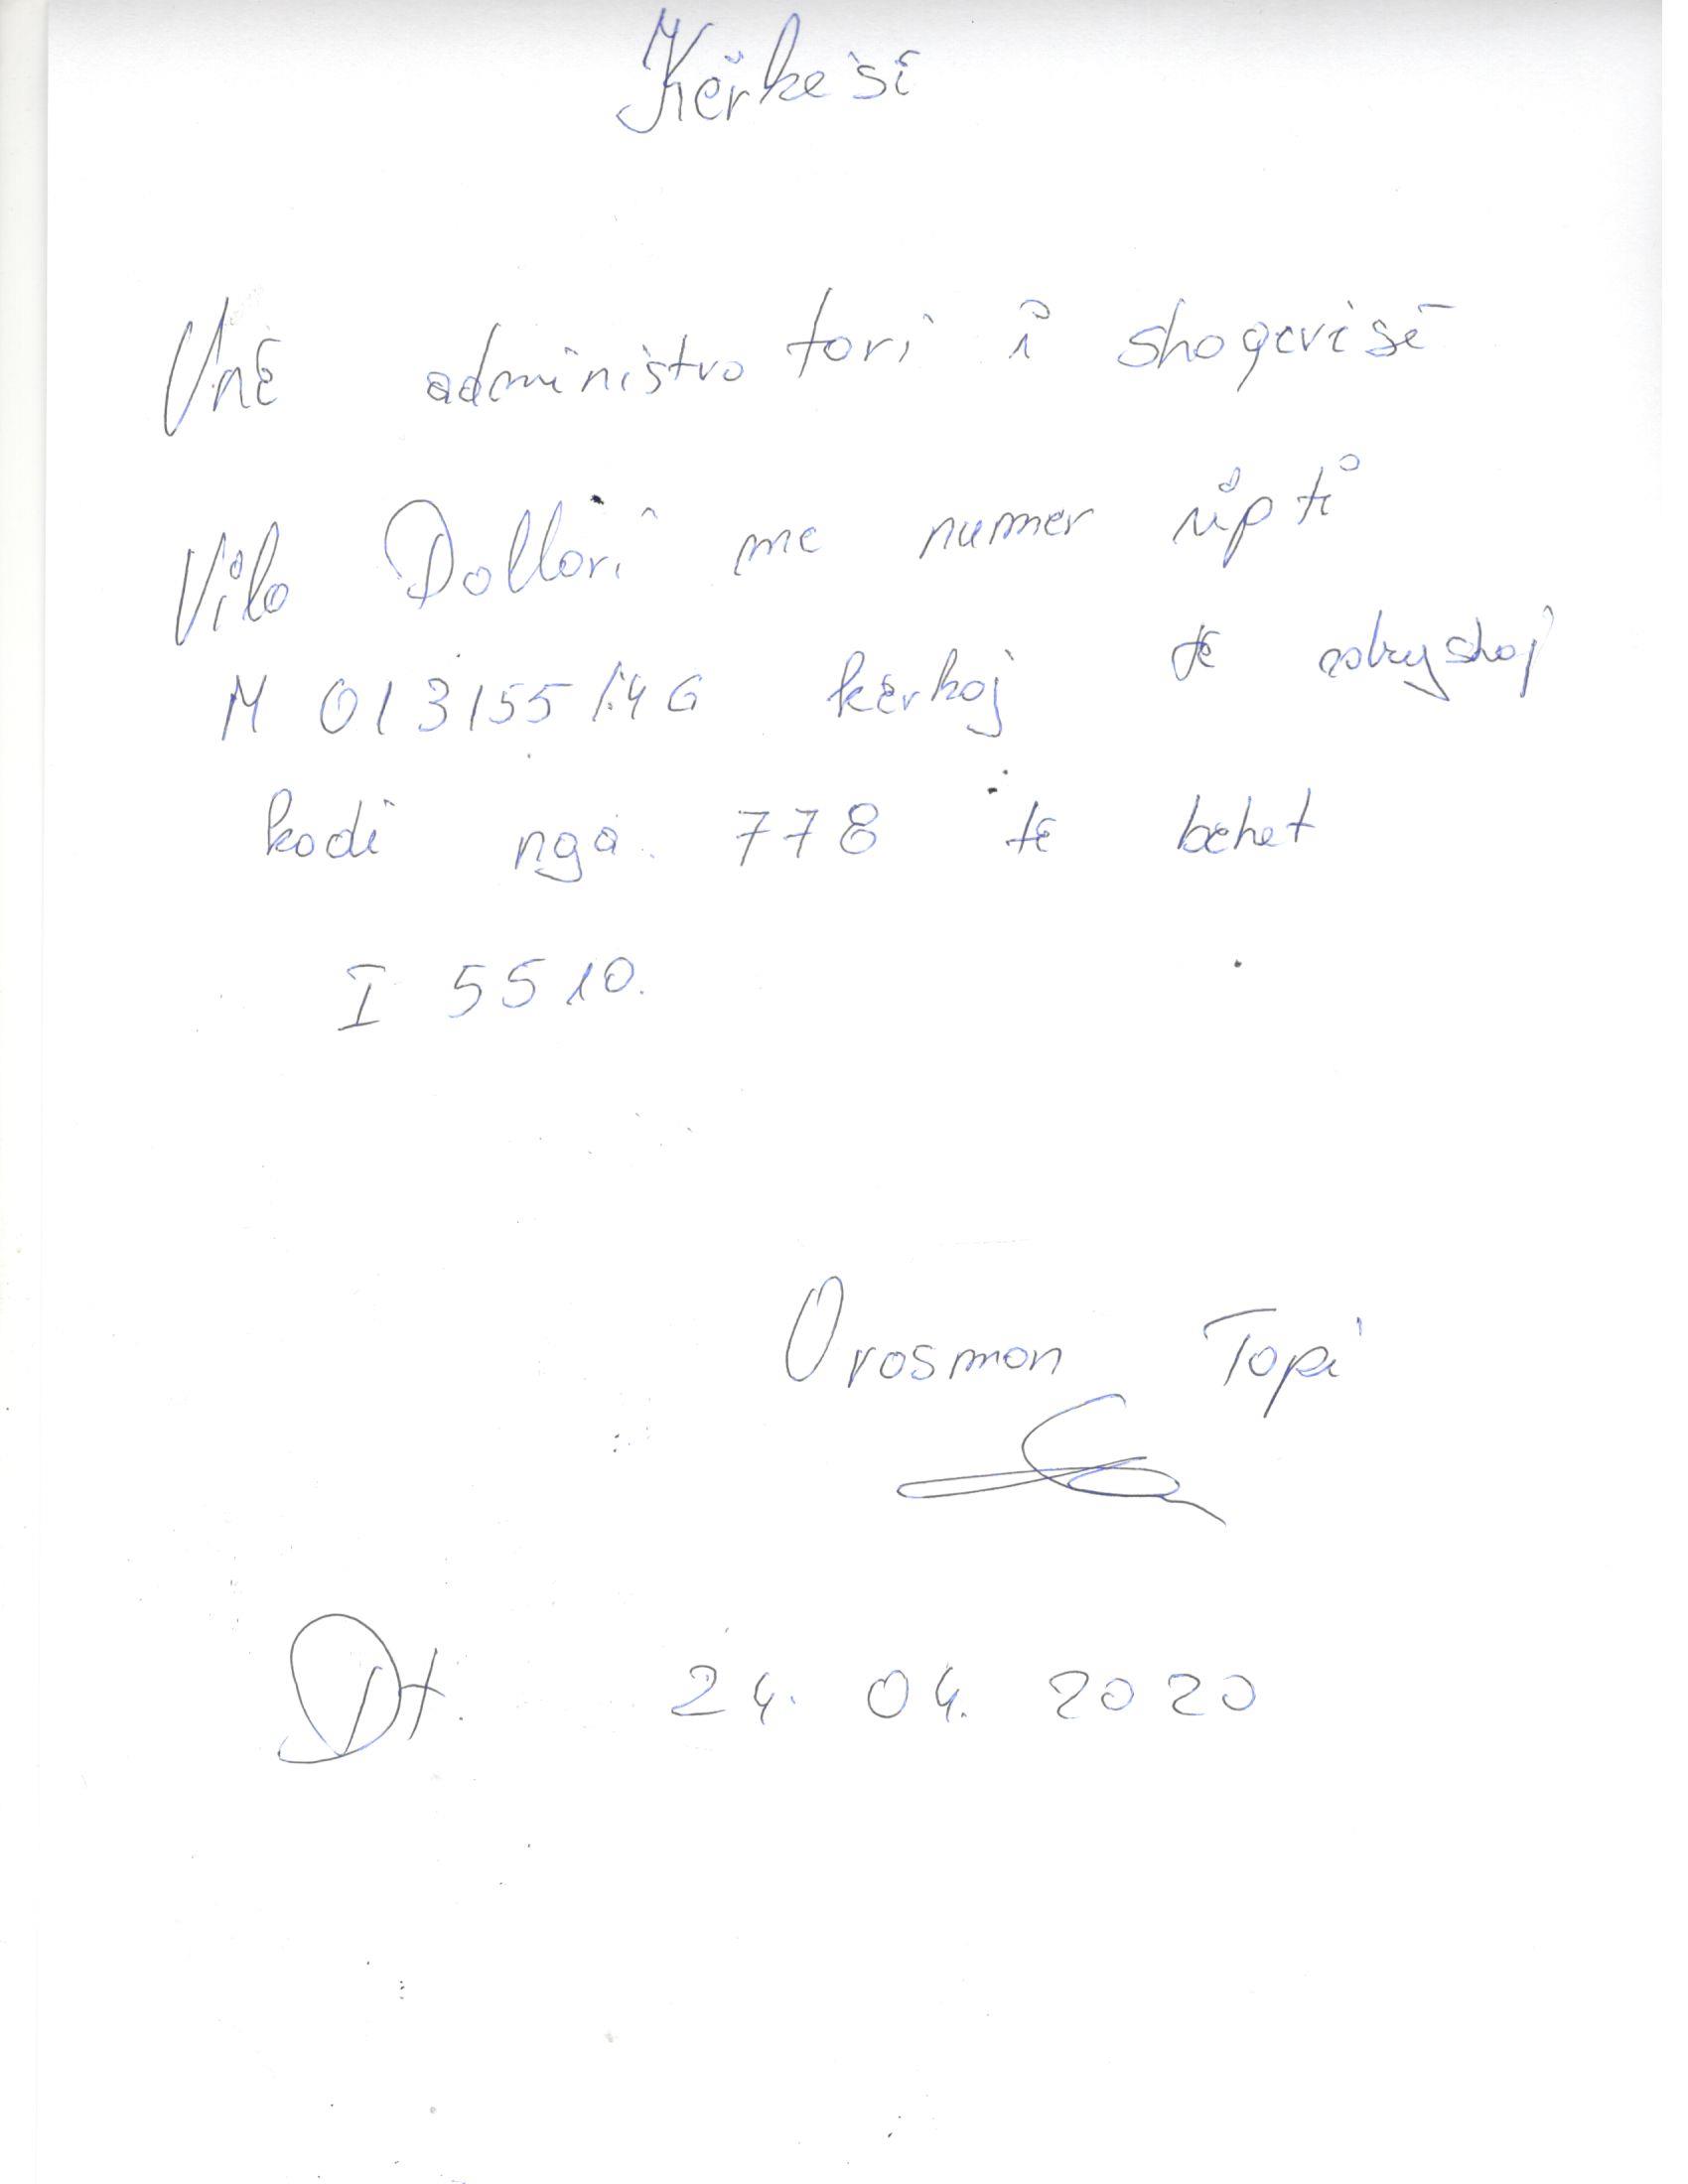 Kërkesë
Unë administratori i shoqerisë
Vila Dollari me numer nipti
M 01315514G kërkoj të ndryshoj
kodi nga 778 të behet
I 5510.
Orosman Topi
Dt. 24. 04. 2020